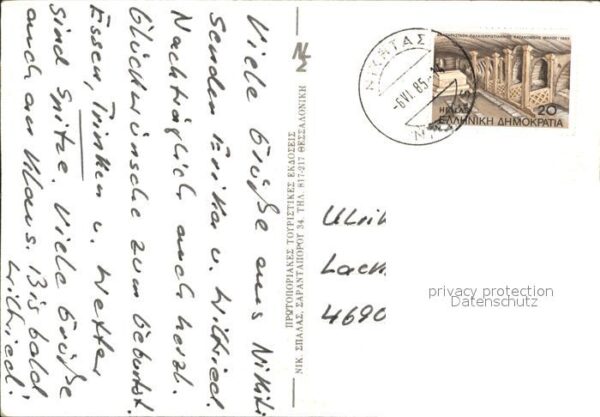 Viele Grüße aus Nikiti
Senden Erika u. Wilfried.
Nachträglich auch herzl.
Glückwünsche zum Geburtst.
Essen, Trinken u. Wetter
sind Spitze. Viele Grüße
auch an Klaus. Bis bald
Wilfried!
ΠΡΩΤΟΠΟΡΙΑΚΕΣ ΤΟΥΡΙΣΤΙΚΕΣ ΕΚΔΟΣΕΙΣ
ΝΙΚ. ΣΠΑΛΑΣ, ΣΑΡΑΝΤΑΠΟΡΟΥ 34, ΤΗΛ. 817-217 ΘΕΣΣΑΛΟΝΙΚΗ
-6 VI. 85
HELLAS
20
ΕΛΛΗΝΙΚΗ ΔΗΜΟΚΡΑΤΙΑ
Ulrik
Lack
4690
privacy protection
Datenschutz